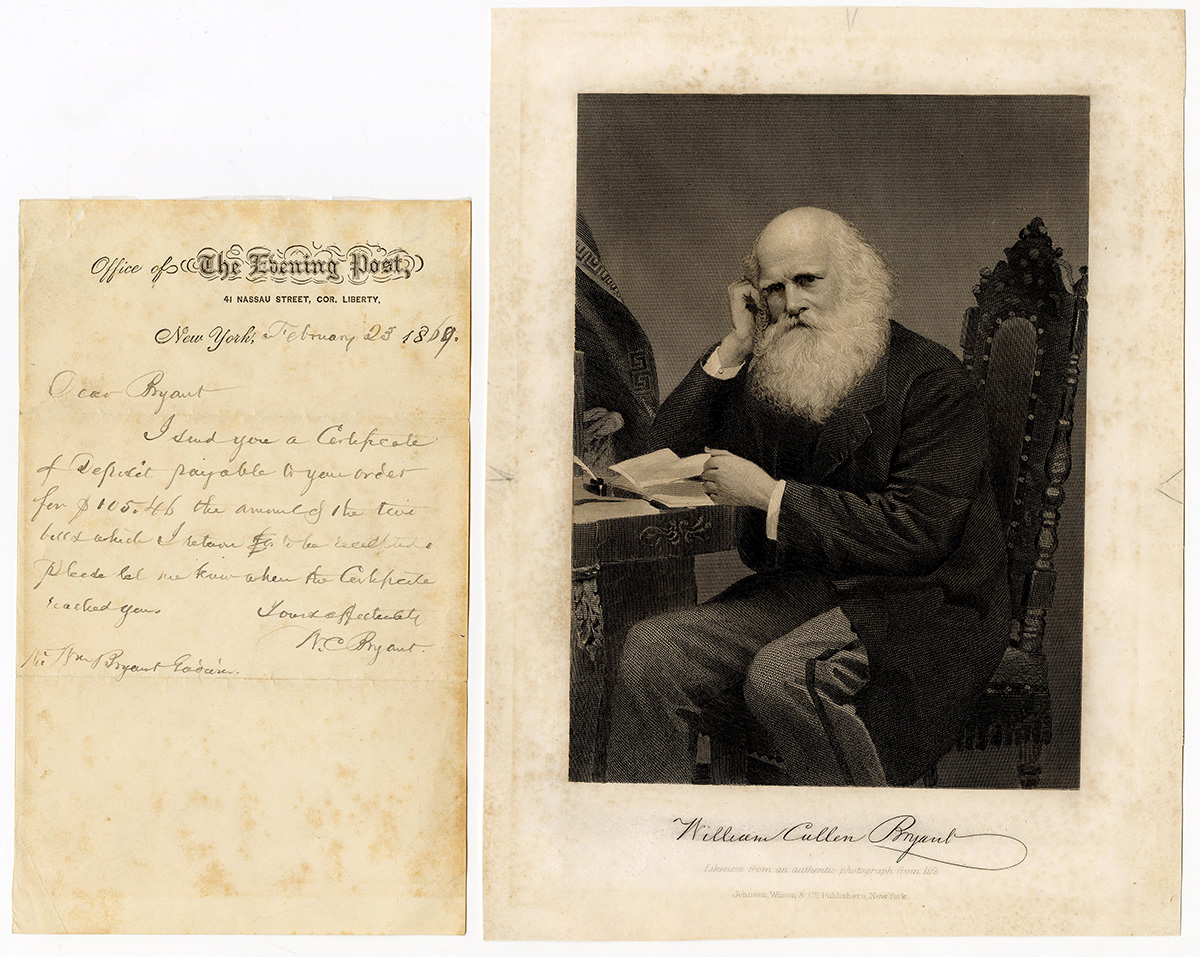 Office of The Evening Post,
41 NASSAU STREET, COR. LIBERTY,
New York, February 23 1869.
Dear Bryant
I send you a Certificate
of Deposit payable to your order
for $105.46 the amount of the two
bills which I return to be receipted.
Please let me know when the Certificate
reached you.
Yours affectionately
W.C. Bryant.
Mr. Wm Bryant
William Cullen Bryant
Likeness from an authentic photograph from life.
Johnson, Wilson & Co., Publishers, New York.